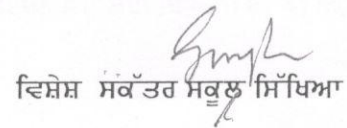 ਵਿਸ਼ੇਸ਼ ਸਕੱਤਰ ਸਕੂਲ ਸਿੱਖਿਆ